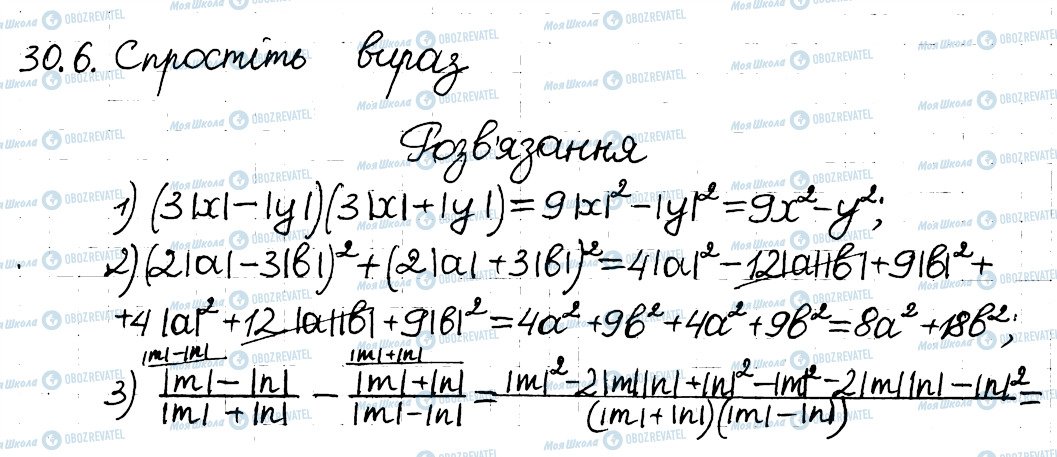 30.6. Спростіть вираз
Розв'язання
1) (3|x|-|y|)(3|x|+|y|)=9|x|²-|y|²=9x²-y²;
2) (2|a|-3|b|)²+(2|a|+3|b|)²=4|a|²-12|a||b|+9|b|²+
+4|a|²+12|a||b|+9|b|²=4a²+9b²+4a²+9b²=8a²+18b²;
|m|-|n| |m|+|n|
3) (|m|-|n|)/(|m|+|n|) - (|m|+|n|)/(|m|-|n|) = (|m|²-2|m||n|+|n|²-|m|²-2|m||n|-|n|²)/((|m|+|n|)(|m|-|n|)) =